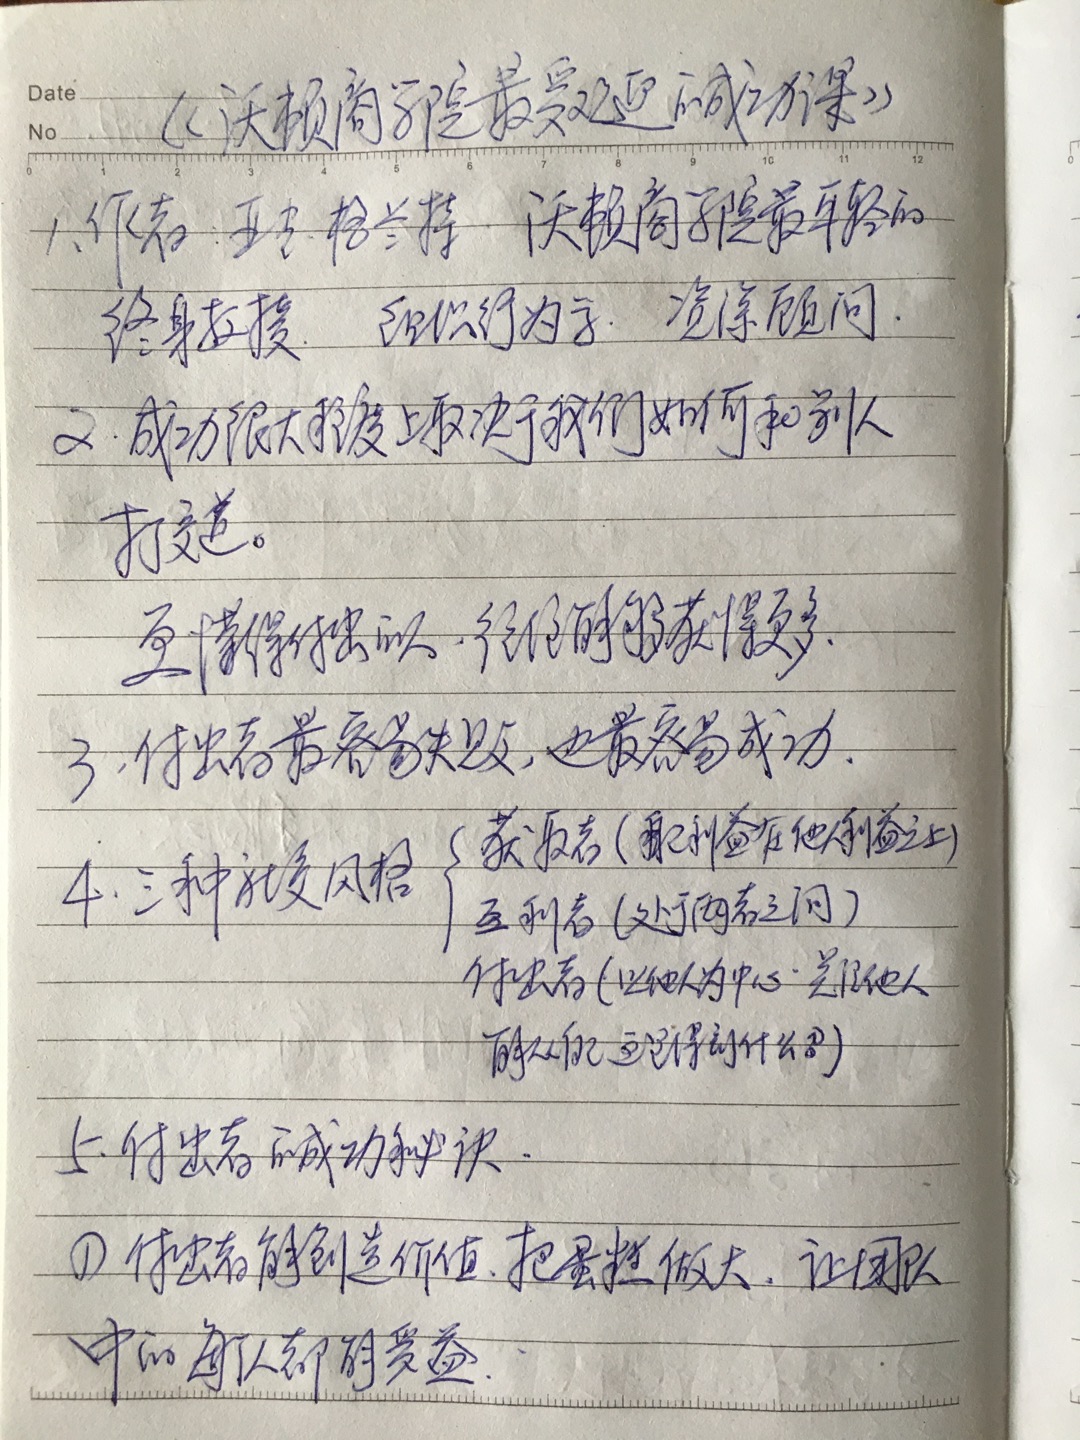 Date
No
《沃顿商学院最受欢迎的成功课》
0 1 2 3 4 5 6 7 8 9 10 11 12
1、作者：亚当.格兰特 沃顿商学院最年轻的
终身教授. 组织行为学. 资深顾问.
2.成功很大程度上取决于我们如何和别人
打交道。
更懂得付出的人.往往能够获得更多.
3、付出者最容易失败,也最容易成功.
4.三种社交风格
获取者(自己利益在他人利益之上)
互利者(处于两者之间)
付出者(以他人为中心.关注他人
能从自己这里得到什么?)
5.付出者的成功秘诀.
①付出者能创造价值.把蛋糕做大.让团队
中的每个人都能受益.